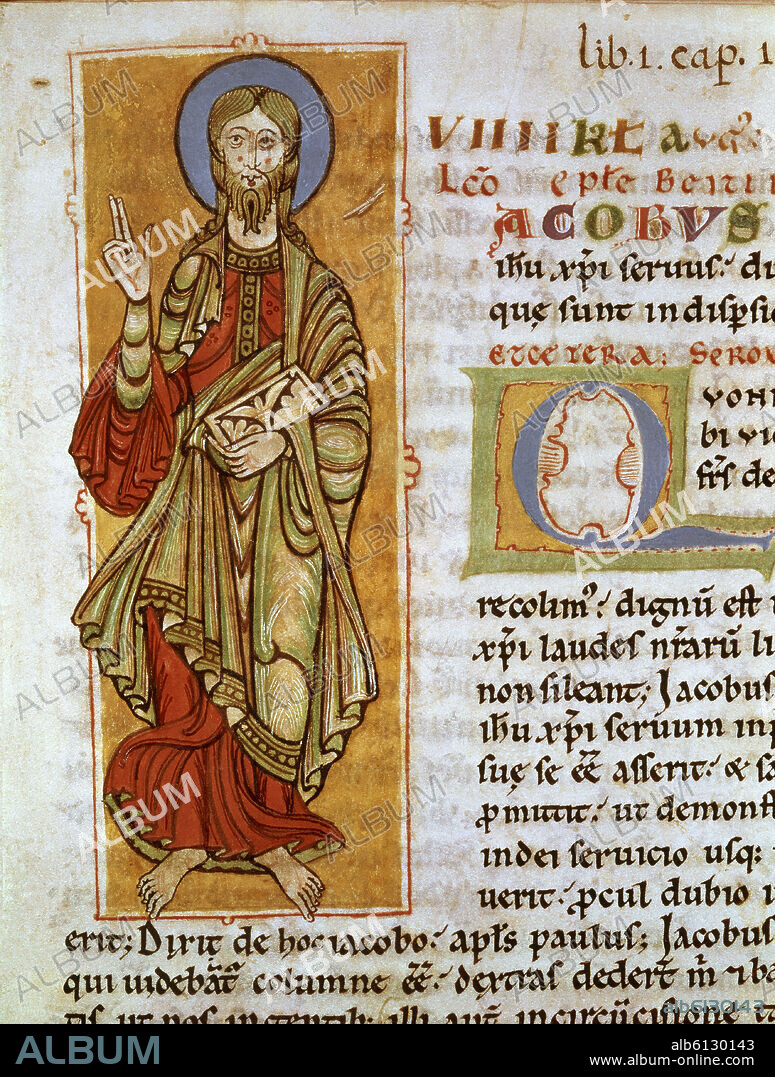 lib. 1. cap. 1
VIIII kł augs.
Lcō epłe Beati
JACOBUS
ihu xpi seruus: di
quę sunt in dispsio
ETCETERA; SERMO
QUONI
bi vi
frs de
recolimꝰ: dignū est
xpi laudes nrarū li
non sileant; Jacobus
ihu xpi seruum in p
suę se eē asserit: & s
pmittit: ut demonst
in dei seruicio usq:
uerit: pcul dubio
erit; Dixit de hoc iacobo: apls paulus; Jacobus
qui uidebāt columne eē: dextras dedert m & ba
tis ut nos in gentib; illi aut in circūcisione
ALBUM
alb6130143
www.album-online.com